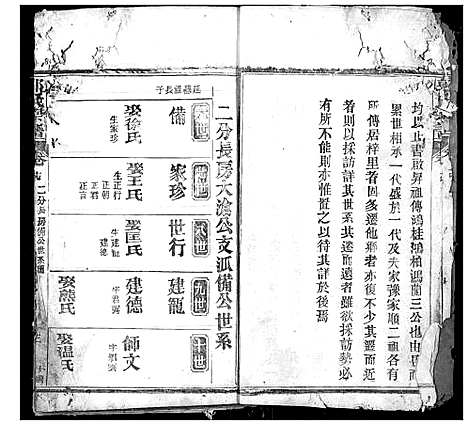 均以此書啟昇祖傳鴻桂鴻柏鴻蘭三公也由
累世相承一代盛於一代及夫家豫家順二祖各
所傳居梓里者固多遷他鄉者亦復不少其遷而近
者則以採訪詳其世系其遷而遠者雖欲採訪勢必
有所不能則亦惟置之以待其詳於後焉
二分長房大滄公支派備公世系
備
娶徐氏
生家珍
家珍
娶王氏
生正行
正朝
正言
世行
娶匡氏
生建龍
建德
九世
建龍
建德
師文
娶熊氏
娶溫氏
二分長房備公世系圖